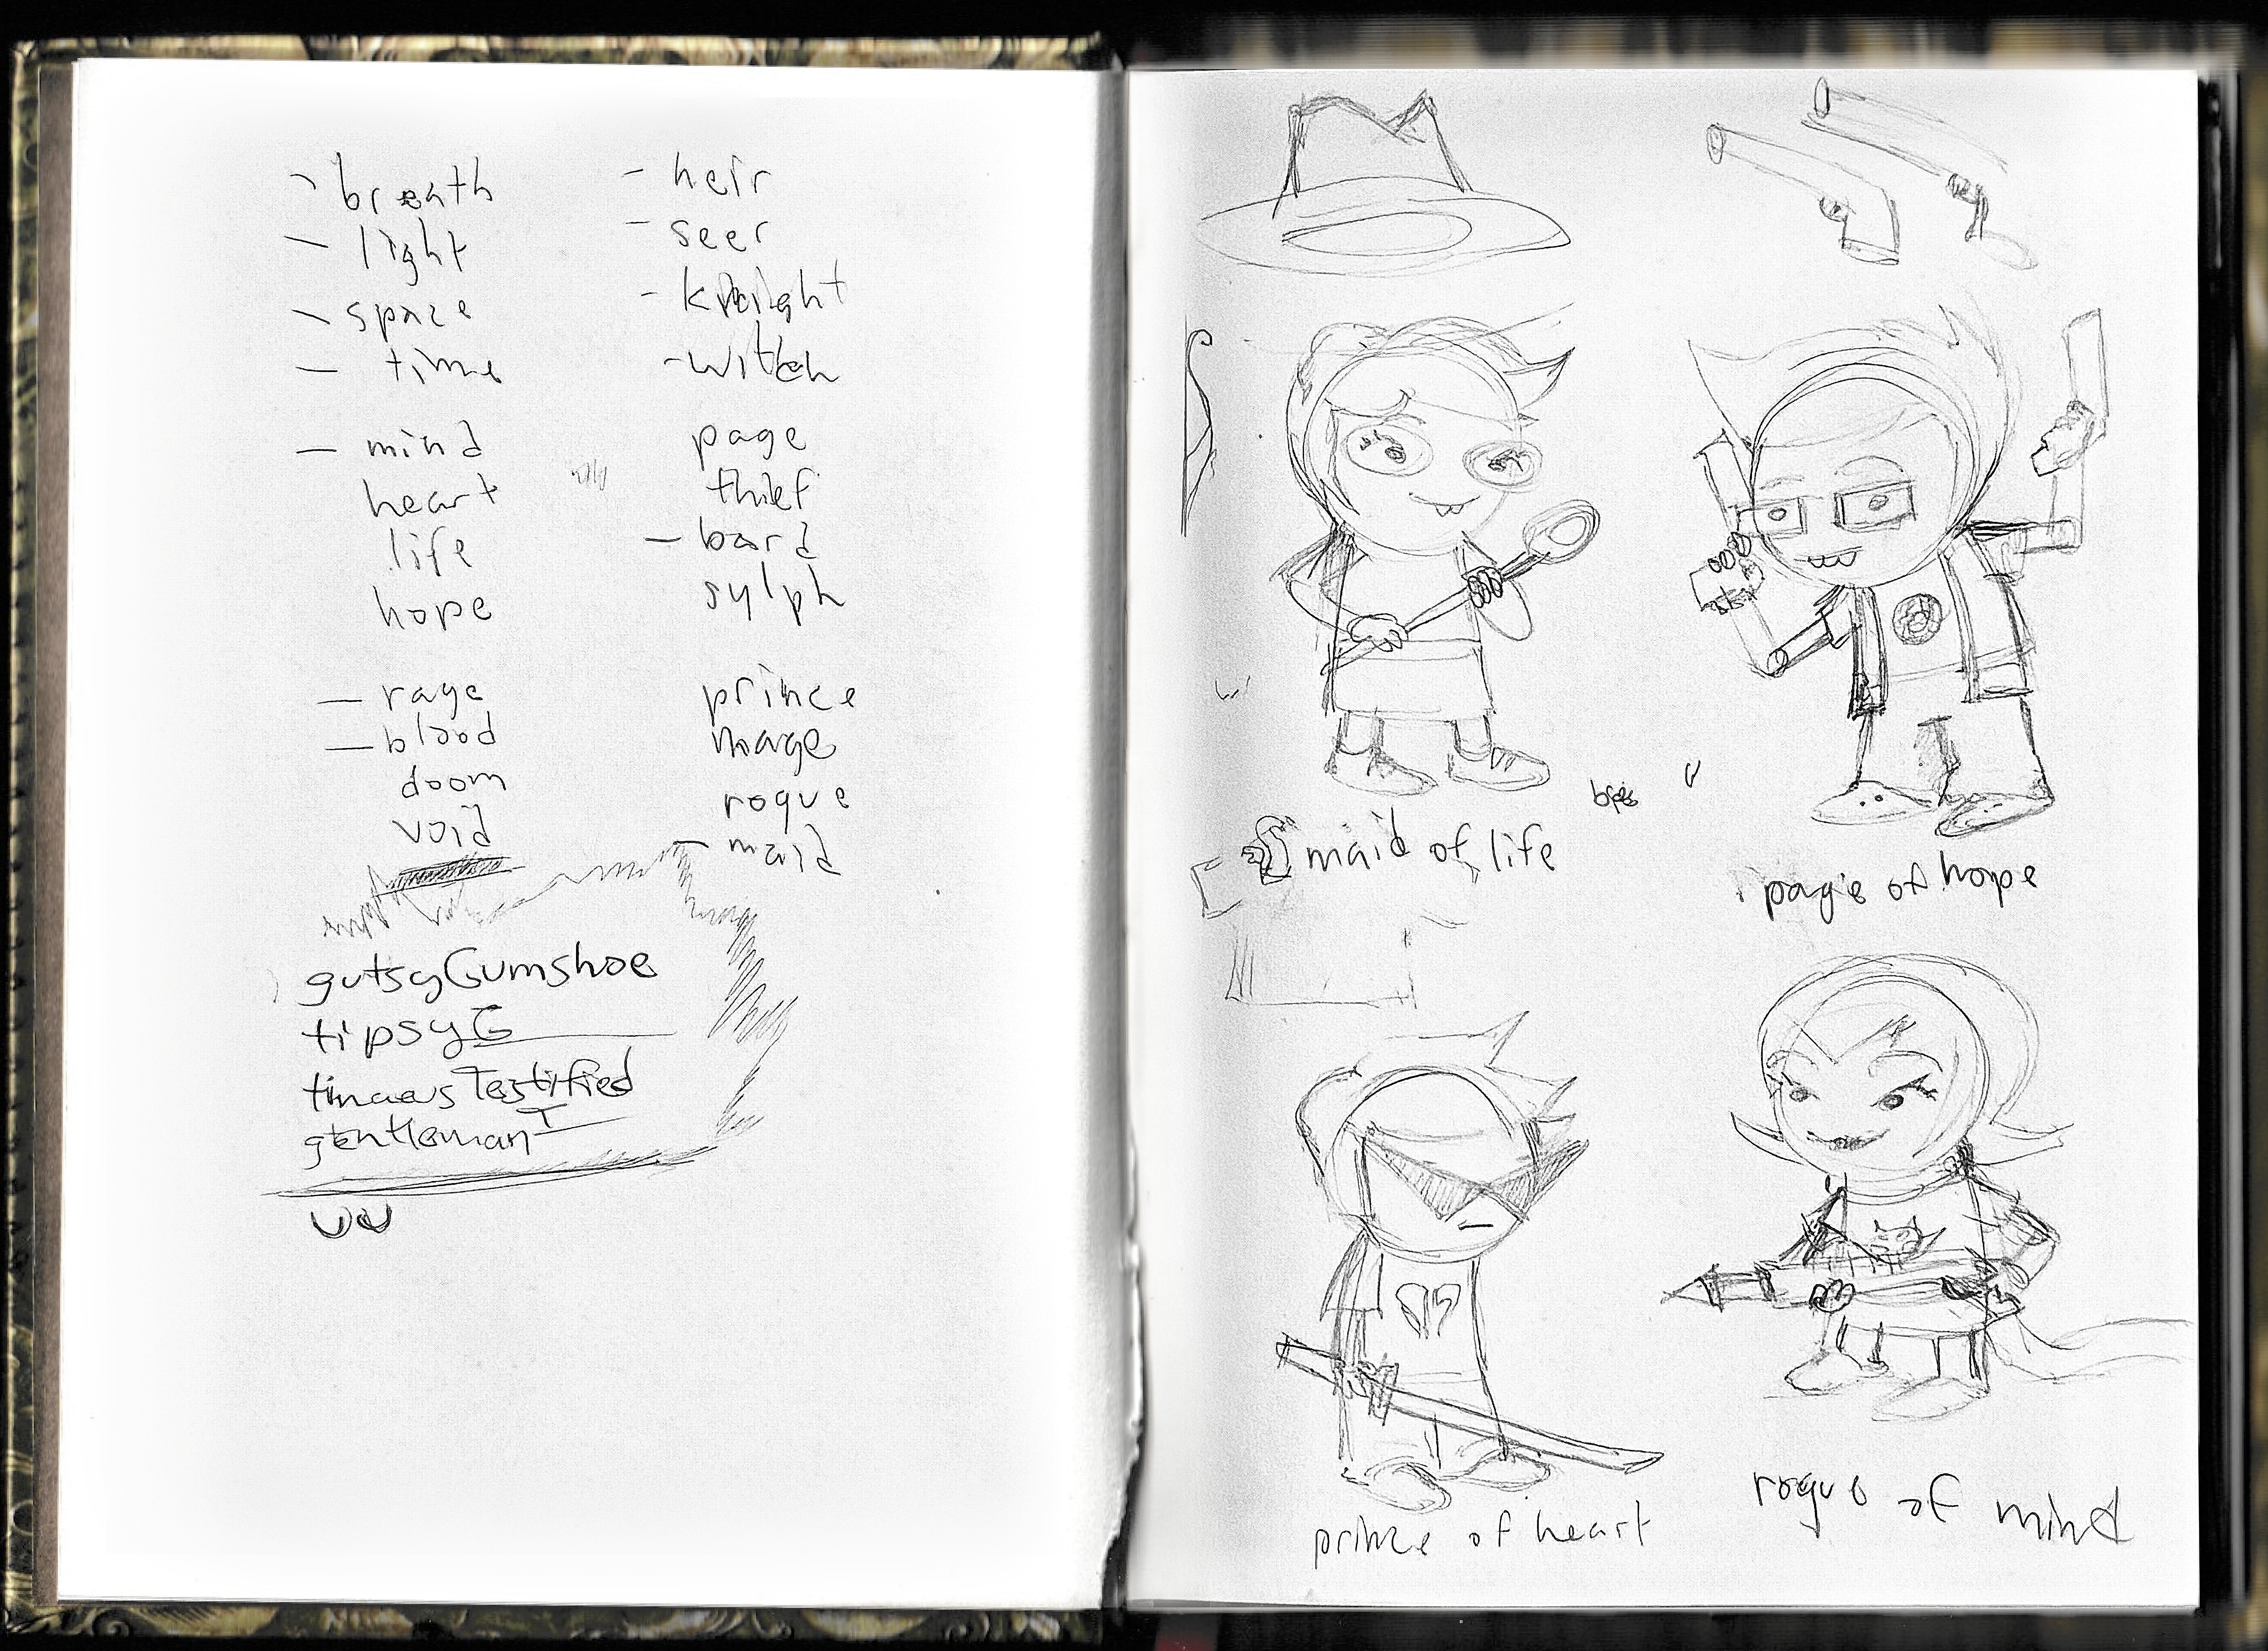 - breath
- light
- space
- time
- mind
heart
life
hope
- rage
- blood
doom
void
- heir
- seer
- knight
- witch
page
thief
- bard
sylph
prince
mage
rogue
- maid
gutsyGumshoe
tipsyG
timaeusTestified
gentlemanT
UU
maid of life
page of hope
prince of heart
rogue of mind